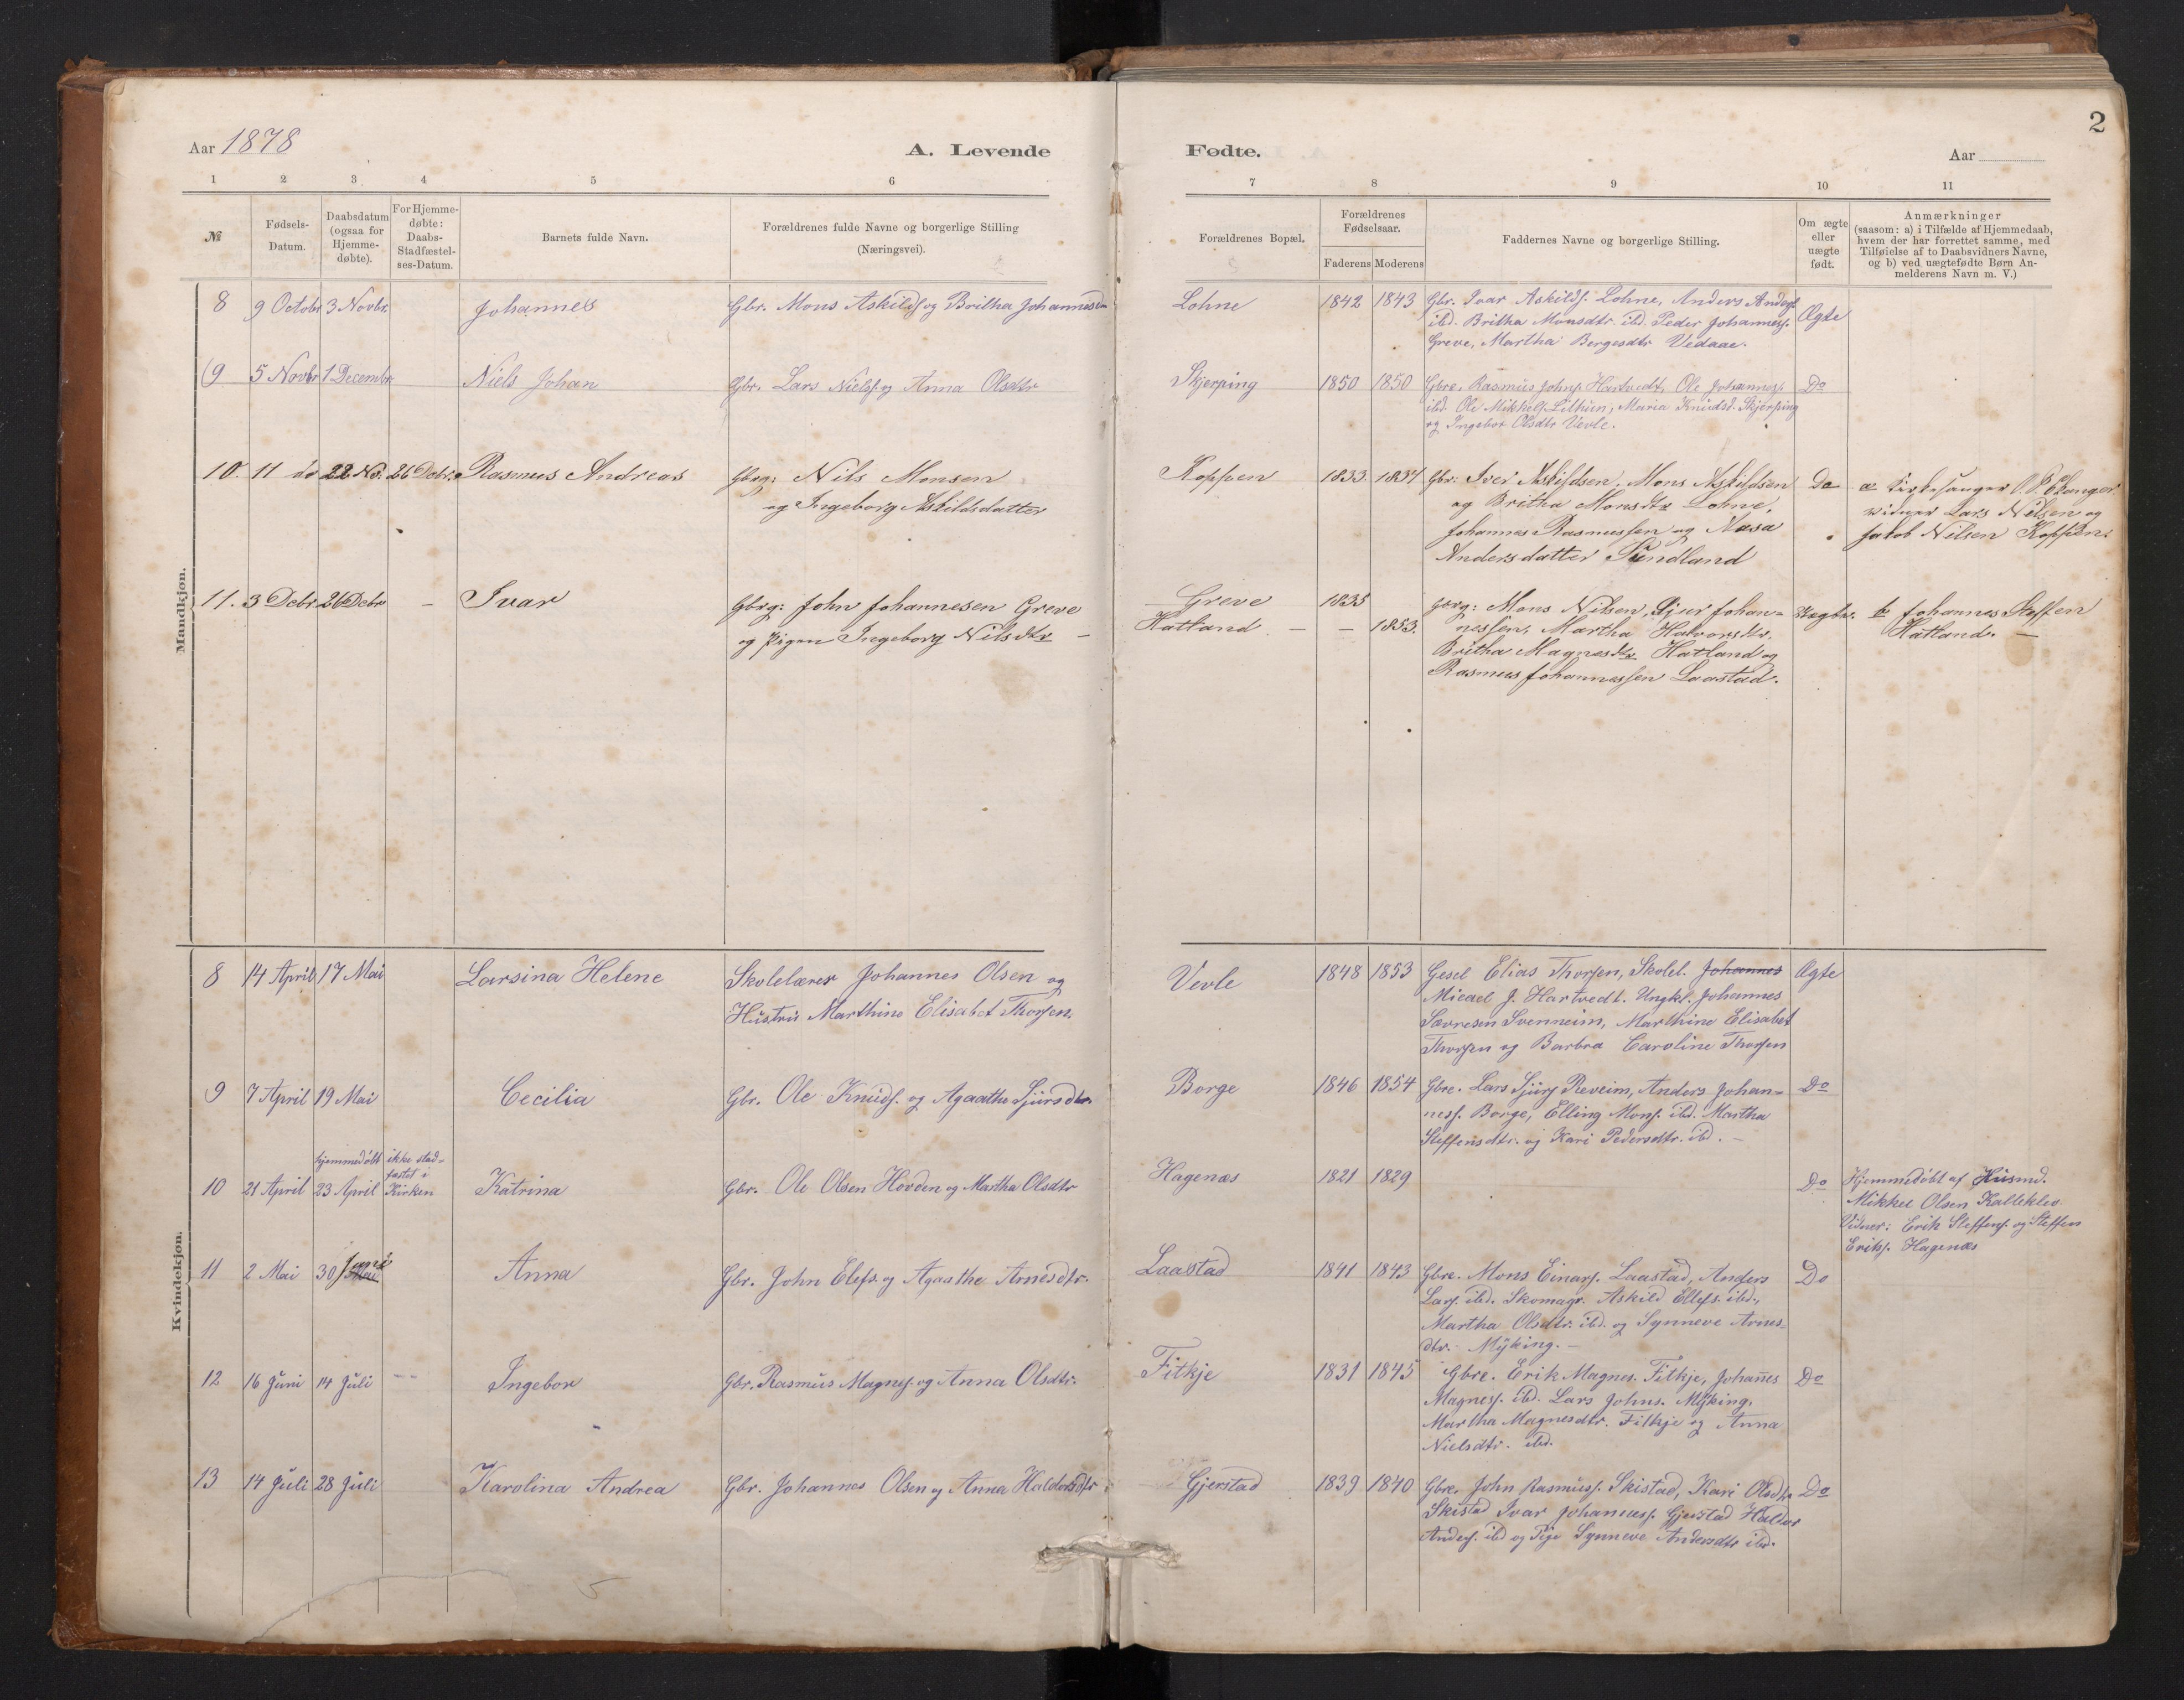 Aar 1878
A. Levende
1 2 3 4 5 6
№
Fødsels-
Datum.
Daabsdatum
(ogsaa for
Hjemme-
døbte).
For Hjemme-
døbte:
Daabs-
Stadfæstel-
ses-Datum.
Barnets fulde Navn.
Forældrenes fulde Navne og borgerlige Stilling
(Næringsvei).
Mandkjøn.
8 9 Octobr 3 Novbr. Johannes Gbr. Mons Askilds. og Britha Johannesdtr
9 5 Novbr 1 Decembr Niels Johan Gbr. Lars Nielss. og Anna Olsdtr
10. 11 do 22 No. 26 Decbr. Rasmus Andreas Gbrg: Nils Monsen
og Ingeborg Askildsdatter
11. 3 Decbr 26 Decbr – Ivar Gbrg: John Johannesen Greve
og Pigen Ingeborg Nilsdtr –
Kvindekjøn.
8 14 April 17 Mai Larsina Helene Skolelærer Johannes Olsen og
Hustru Marthine Elisabet Thorsen.
9 7 April 19 Mai Cecilia Gbr. Ole Knuds. og Agaathe Sjursdtr.
hjemmedöbt ikke stad-
fæstet i
10 21 April 23 April Kirken Katrina Gbr. Ole Olsen Hovden og Martha Olsdtr
11 2 Mai 30 Juni Anna Gbr. John Elefs. og Agaathe Arnesdtr.
12 16 Juni 14 Juli -- Ingebor Gbr. Rasmus Magnes. og Anna Olsdtr.
13 14 Juli 28 Juli Karolina Andrea Gbr. Johannes Olsen og Anna Haldorsdtr
2
Fødte.
Aar
7 8 9 10 11
Forældrenes Bopæl.
Forældrenes
Fødselsaar.
Faderens Moderens
Faddernes Navne og borgerlige Stilling.
Om ægte
eller
uægte
født.
Anmærkninger
(saasom: a) i Tilfælde af Hjemmedaab,
hvem der har forrettet samme, med
Tilføielse af to Daabsvidners Navne,
og b) ved uægtefødte Børn An-
melderens Navn m. V.)
Lohne 1842 1843 Gbr. Ivar Askilds. Lohne, Anders Anders.
ibd. Britha Monsdtr. ibd. Peder Johanness. Ægte
Greve, Martha Bergesdtr Vedaae.
Skjerping 1850 1850 Gbre. Rasmus Johns. Hartvedt, Ole Johanness. Do
ibd. Ole Mikkels. Lithun, Maria Knudsd. Skjerping
og Ingebor Olsdtr Vevle.
Koppen 1833. 1837 Gbr. Iver Askildsen. Mons Askildsen Do a Kirkesanger
og Britha Monsdtr Lohne, vidner Lars Nilsen og
Johannes Rasmussen og Jakob Nilsen Koppen.
Andersdatter Sundland
Greve 1835 Gbrg: Mons Nilsen, Sjur Johan= Uægte. b Johannes Steffen
Hatland – – 1853. nessen, Martha Halvorsdtr. Hatland. –
Britha Magnesdtr Hatland og
Rasmus Johannessen Laastad.
Vevle 1848 1853 Gesel Elias Thorsen, Skolel. Johannes Ægte
Micael J. Hartvedt. Ungkl. Johannes
Sævresen Svenneim, Marthine Elisabet
Thorsen og Barbra Caroline Thorsen
Borge 1846 1854 Gbre. Lars Sjurs. Reveim, Anders Johan= Do
ness. Borge, Elling Mons. ibd. Martha
Steffensdtr. og Kari Pedersdtr. ibd. –
Hagenæs 1821 1829 Do Hjemmedöbt af Husmd.
Mikkel Olsen Kalleklev
Vidner: Erik Steffens. og Steffen
Eriks. Hagenæs
Laastad 1841 1843 Gbre. Mons Einars. Laastad, Anders Do
Lars. ibd. Skomagr. Askild Ellefs. ibd.,
Martha Olsdtr. ibd. og Synneve Arnes=
dtr. Myking. –
Fitkje 1831 1845 Gbre. Erik Magnes. Fitkje, Johannes Do
Magness. ibd. Lars Johns. Myking.
Martha Magnesdtr. Fitkje og Anna
Nielsdtr. ibd.
Gjerstad 1839 1840 Gbre. John Rasmuss. Skistad, Kari Olsdtr Do
Skistad Ivar Johanness. Gjerstad Haldor
Anders. ibd og Pige Synneve Andersdtr ibd.